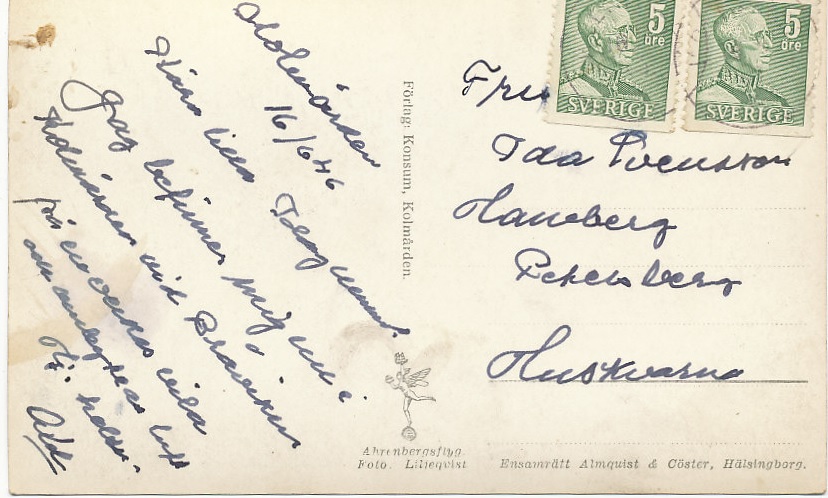 Kolmården
16/6 46
Kära lilla
Jag befinner mig nu i
Kolmården vid Bråviken
på en veckas vila
och luft
Hj. hälsn.
Förlag: Konsum, Kolmården.
5 öre SVERIGE
5 öre SVERIGE
Fru
Ida Svensson
Haneberg
Petersberg
Huskvarna
Ahrenbergsflyg.
Foto. Liljeqvist
Ensamrätt Almquist & Cöster, Hälsingborg.